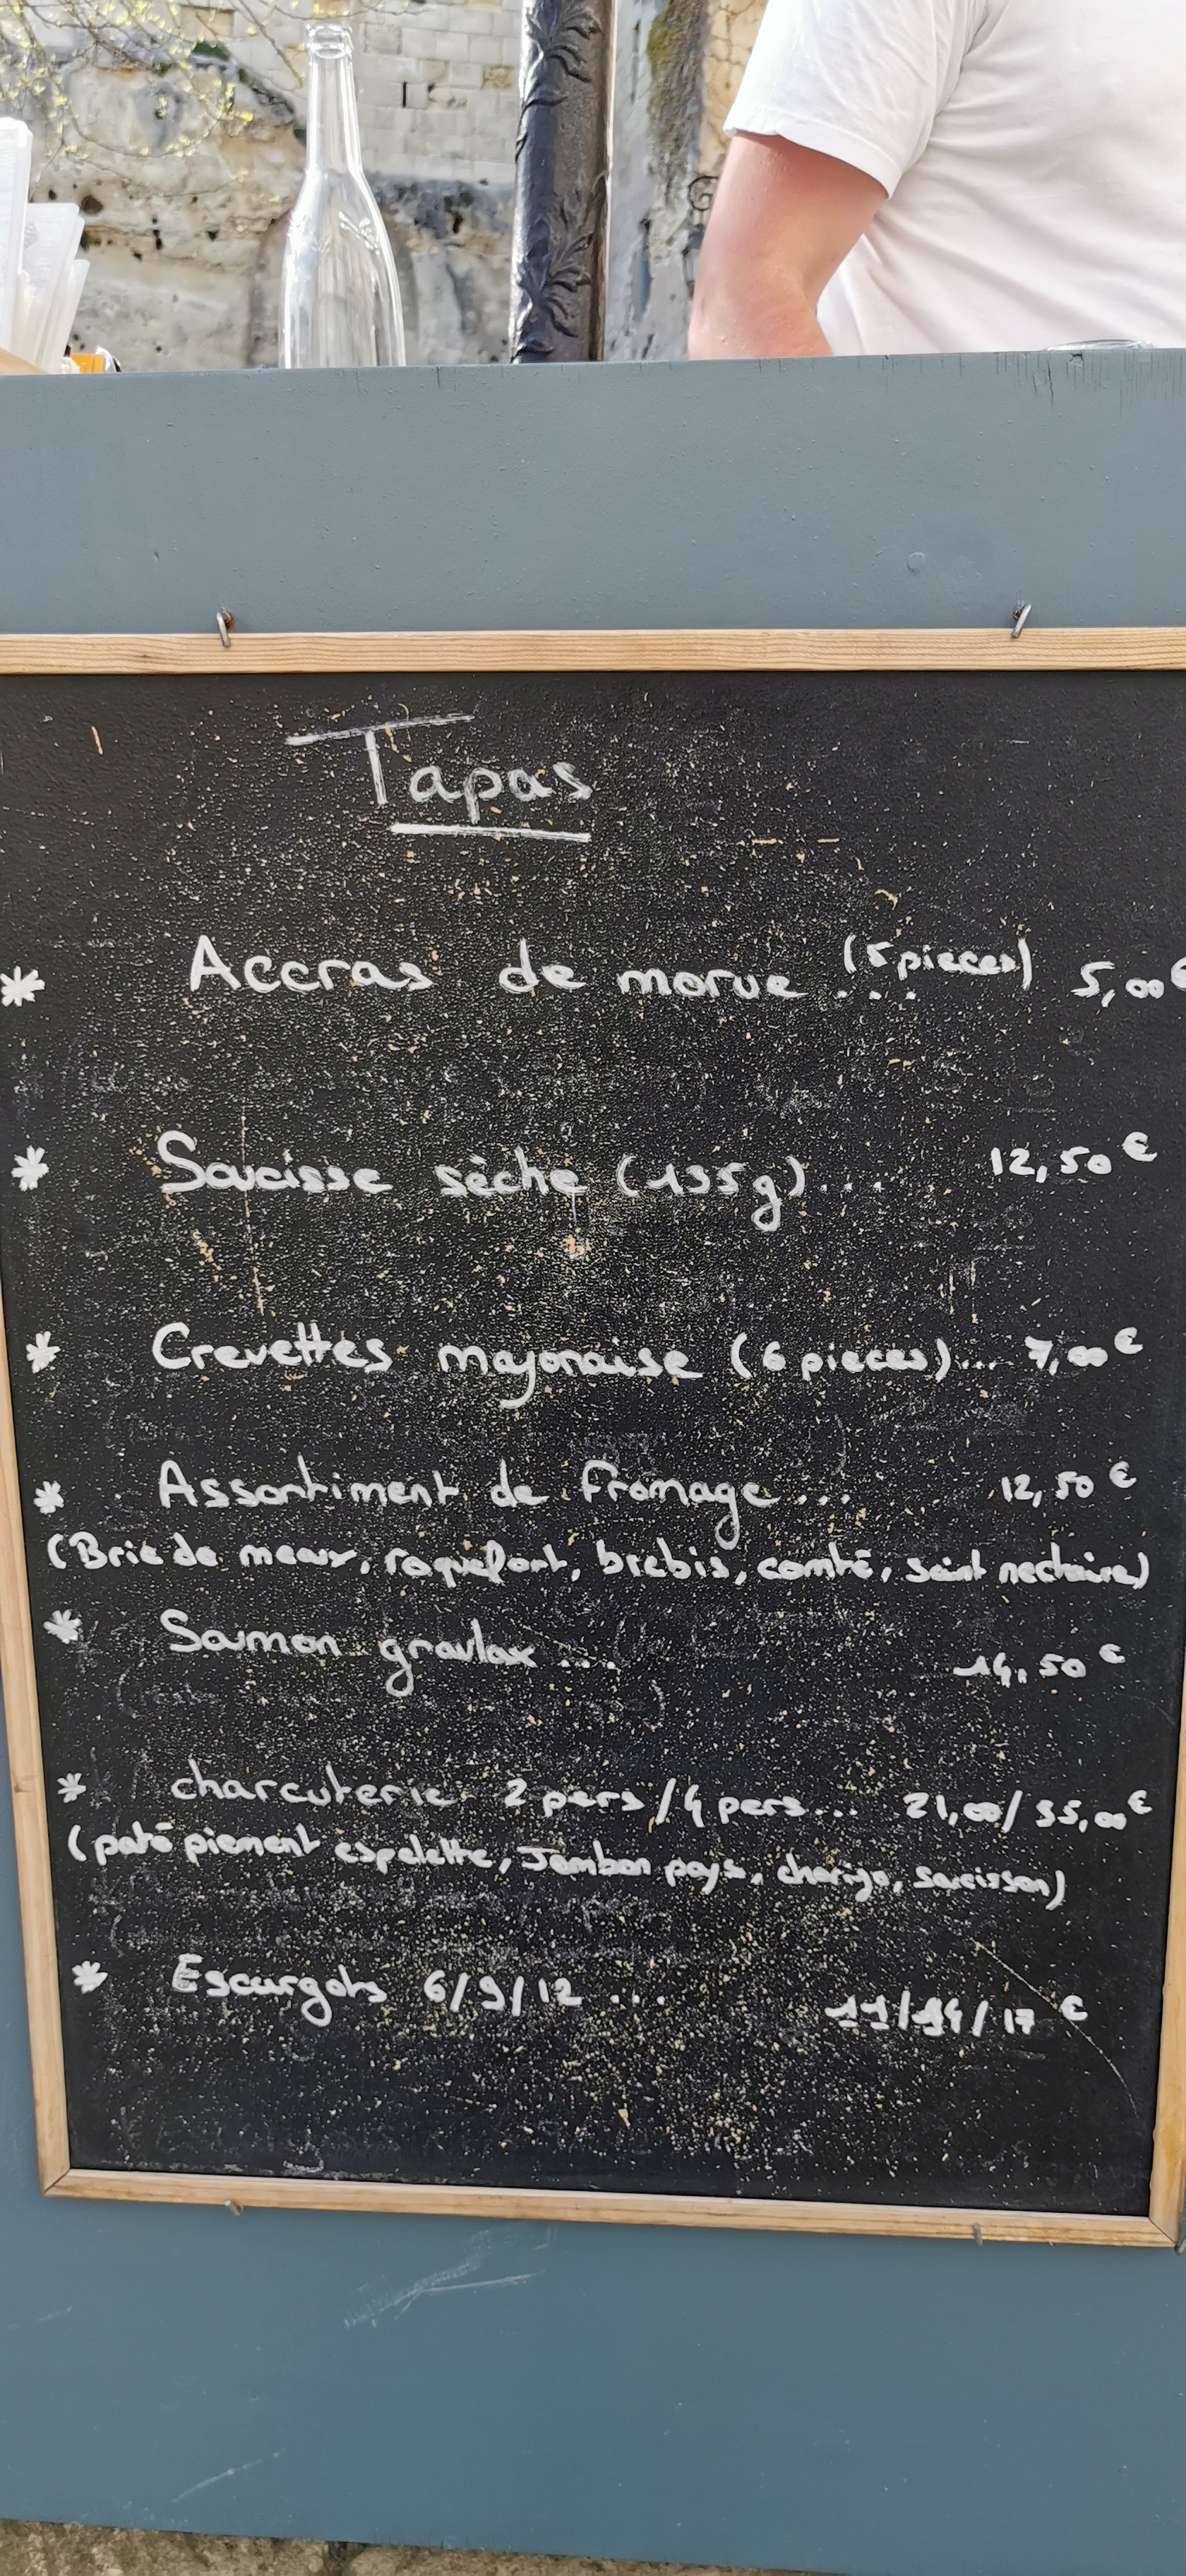 Tapas
* Accras de morue ... (5 pieces) 5,00€
* Saucisse sèche (135g)... 12,50€
* Crevettes mayonaise (6 pieces)... 7,00€
* Assortiment de fromage... 12,50€
(Brie de meaux, roquefort, brebis, comté, saint nectaire)
* Saumon gravlax .... 14,50€
* charcuterie 2 pers/4 pers... 21,00/35,00€
(paté piement espelette, Jambon pays, chorizo, saucisson)
* Escargots 6/9/12 ... 11/14/17€